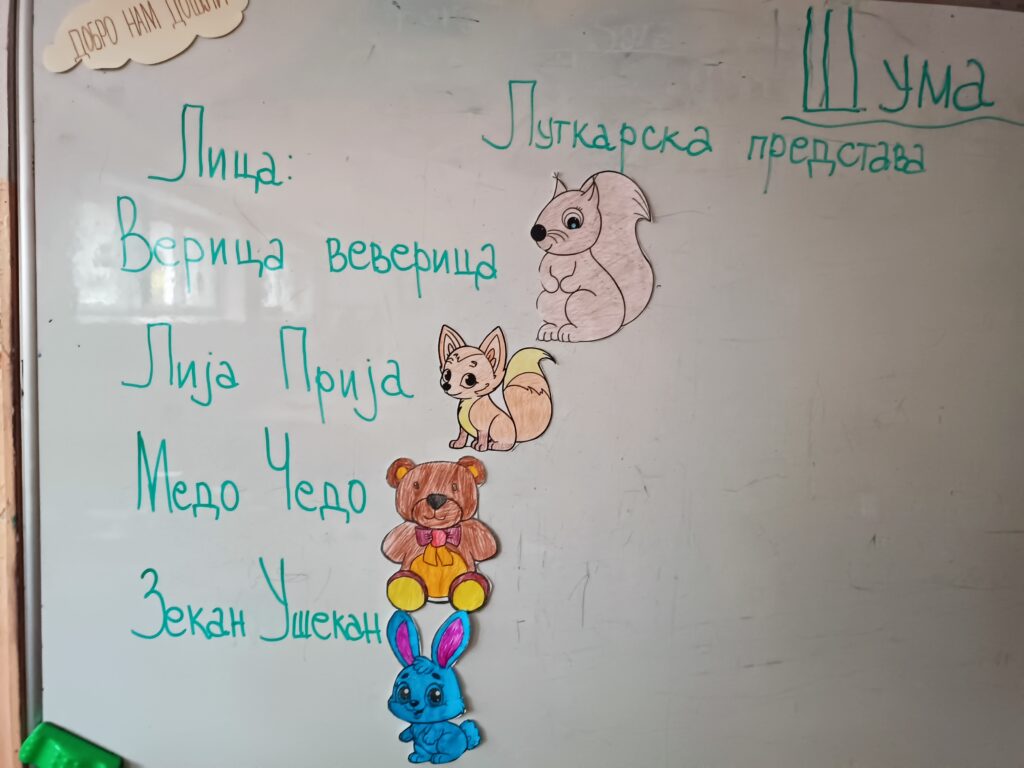 ДОБРО НАМ ДОШЛИ
Шума
Луткарска представа
Лица:
Верица веверица
Лија Прија
Медо Чедо
Зекан Ушекан